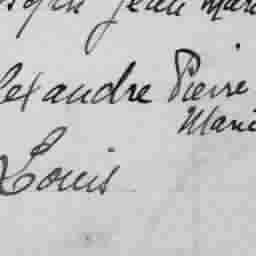 Jean Mari
lexandre Pierre
Marie
Louis